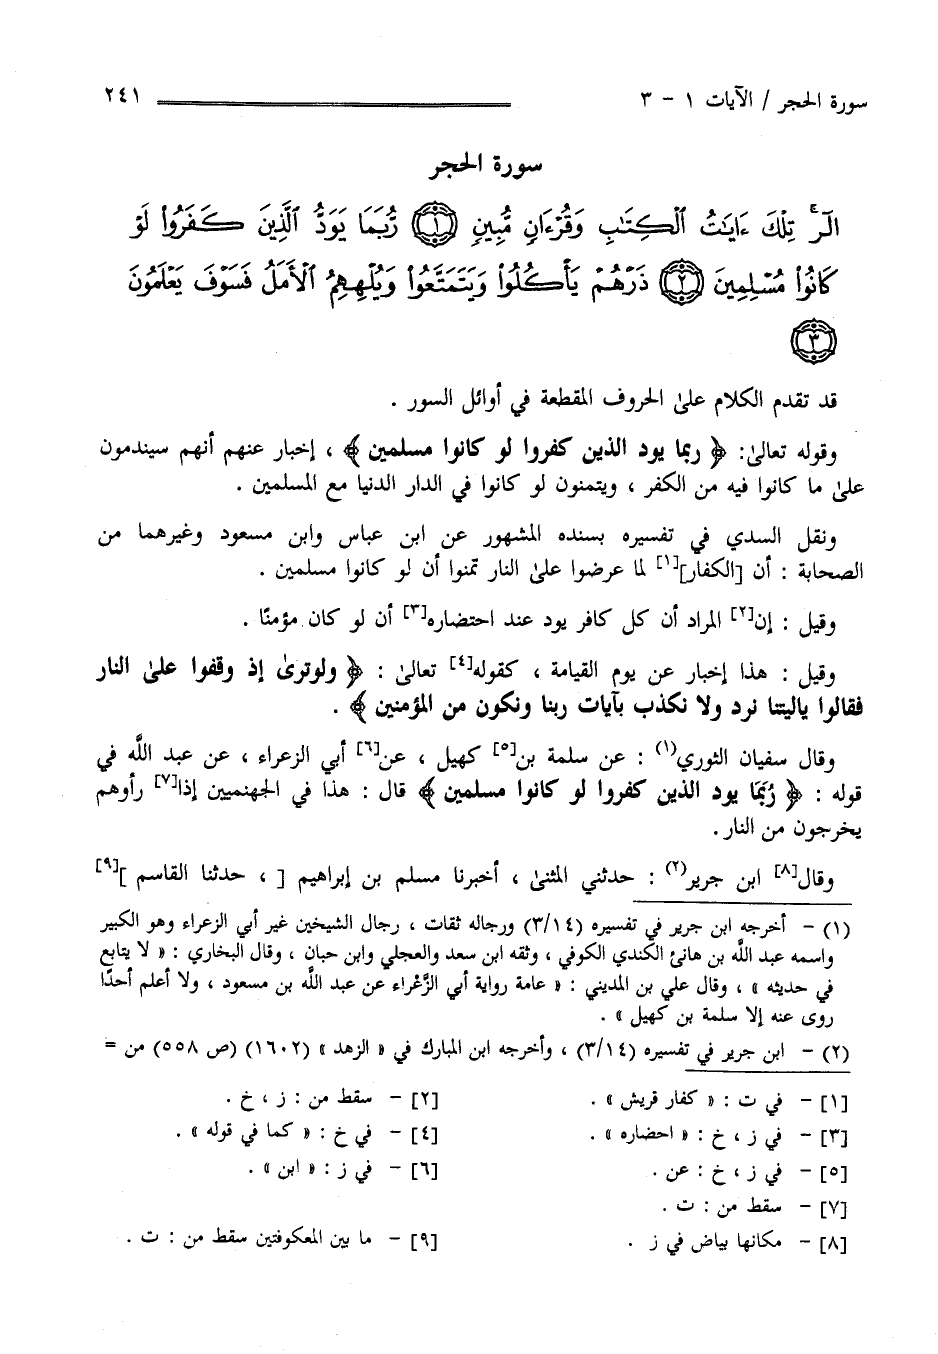 سورة الحجر / الآيات ١ - ٣ ٢٤١
سورة الحجر
الٓرۚ تِلْكَ ءَايَٰتُ ٱلْكِتَٰبِ وَقُرْءَانٍ مُّبِينٍ ١ رُّبَمَا يَوَدُّ ٱلَّذِينَ كَفَرُوا۟ لَوْ
كَانُوا۟ مُسْلِمِينَ ٢ ذَرْهُمْ يَأْكُلُوا۟ وَيَتَمَتَّعُوا۟ وَيُلْهِهِمُ ٱلْأَمَلُ فَسَوْفَ يَعْلَمُونَ
٣
قد تقدم الكلام علىٰ الحروف المقطعة في أوائل السور .
وقوله تعالىٰ: ﴿ ربما يود الذين كفروا لو كانوا مسلمين ﴾ ، إخبار عنهم أنهم سيندمون
علىٰ ما كانوا فيه من الكفر ، ويتمنون لو كانوا في الدار الدنيا مع المسلمين .
ونقل السدي في تفسيره بسنده المشهور عن ابن عباس وابن مسعود وغيرهما من
الصحابة : أن [الكفار][١] لما عرضوا علىٰ النار تمنوا أن لو كانوا مسلمين .
وقيل : إن[٢] المراد أن كل كافر يود عند احتضاره[٣] أن لو كان مؤمنًا .
وقيل : هذا إخبار عن يوم القيامة ، كقوله[٤] تعالىٰ : ﴿ ولوترىٰ إذ وقفوا علىٰ النار
فقالوا ياليتنا نرد ولا نكذب بآيات ربنا ونكون من المؤمنين ﴾ .
وقال سفيان الثوري(١) : عن سلمة بن[٥] كهيل ، عن[٦] أبي الزعراء ، عن عبد اللَّه في
قوله : ﴿ رُبَمَا يود الذين كفروا لو كانوا مسلمين ﴾ قال : هذا في الجهنميين إذا[٧] رأوهم
يخرجون من النار .
وقال[٨] ابن جرير(٢) : حدثني المثنىٰ ، أخبرنا مسلم بن إبراهيم [ ، حدثنا القاسم ][٩]
(١) - أخرجه ابن جرير في تفسيره (٣/١٤) ورجاله ثقات ، رجال الشيخين غير أبي الزعراء وهو الكبير
واسمه عبد اللَّه بن هانئ الكندي الكوفي ، وثقه ابن سعد والعجلي وابن حبان ، وقال البخاري : « لا يتابع
في حديثه » ، وقال علي بن المديني : « عامة رواية أبي الزَّعْراء عن عبد اللَّه بن مسعود ، ولا أعلم أحدًا
روى عنه إلا سلمة بن كهيل » .
(٢) - ابن جرير في تفسيره (٣/١٤) ، وأخرجه ابن المبارك في « الزهد » (١٦٠٢) (ص ٥٥٨) من =
[١] - في ت : « كفار قريش » . [٢] - سقط من : ز ، خ .
[٣] - في ز ، خ : « احضاره » . [٤] - في خ : « كما في قوله » .
[٥] - في ز ، خ : عن . [٦] - في ز : « ابن » .
[٧] - سقط من : ت .
[٨] - مكانها بياض في ز . [٩] - ما بين المعكوفتين سقط من : ت .